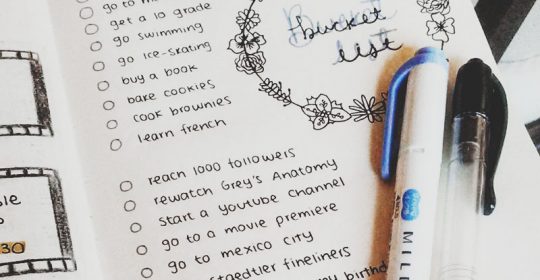 go to
get a 10 grade
go swimming
go ice-skating
buy a book
bake cookies
cook brownies
learn french
bucket
list
reach 1000 followers
rewatch Grey's Anatomy
start a youtube channel
go to a movie premiere
go to mexico city
staedtler fineliners
birthd
30
MIL